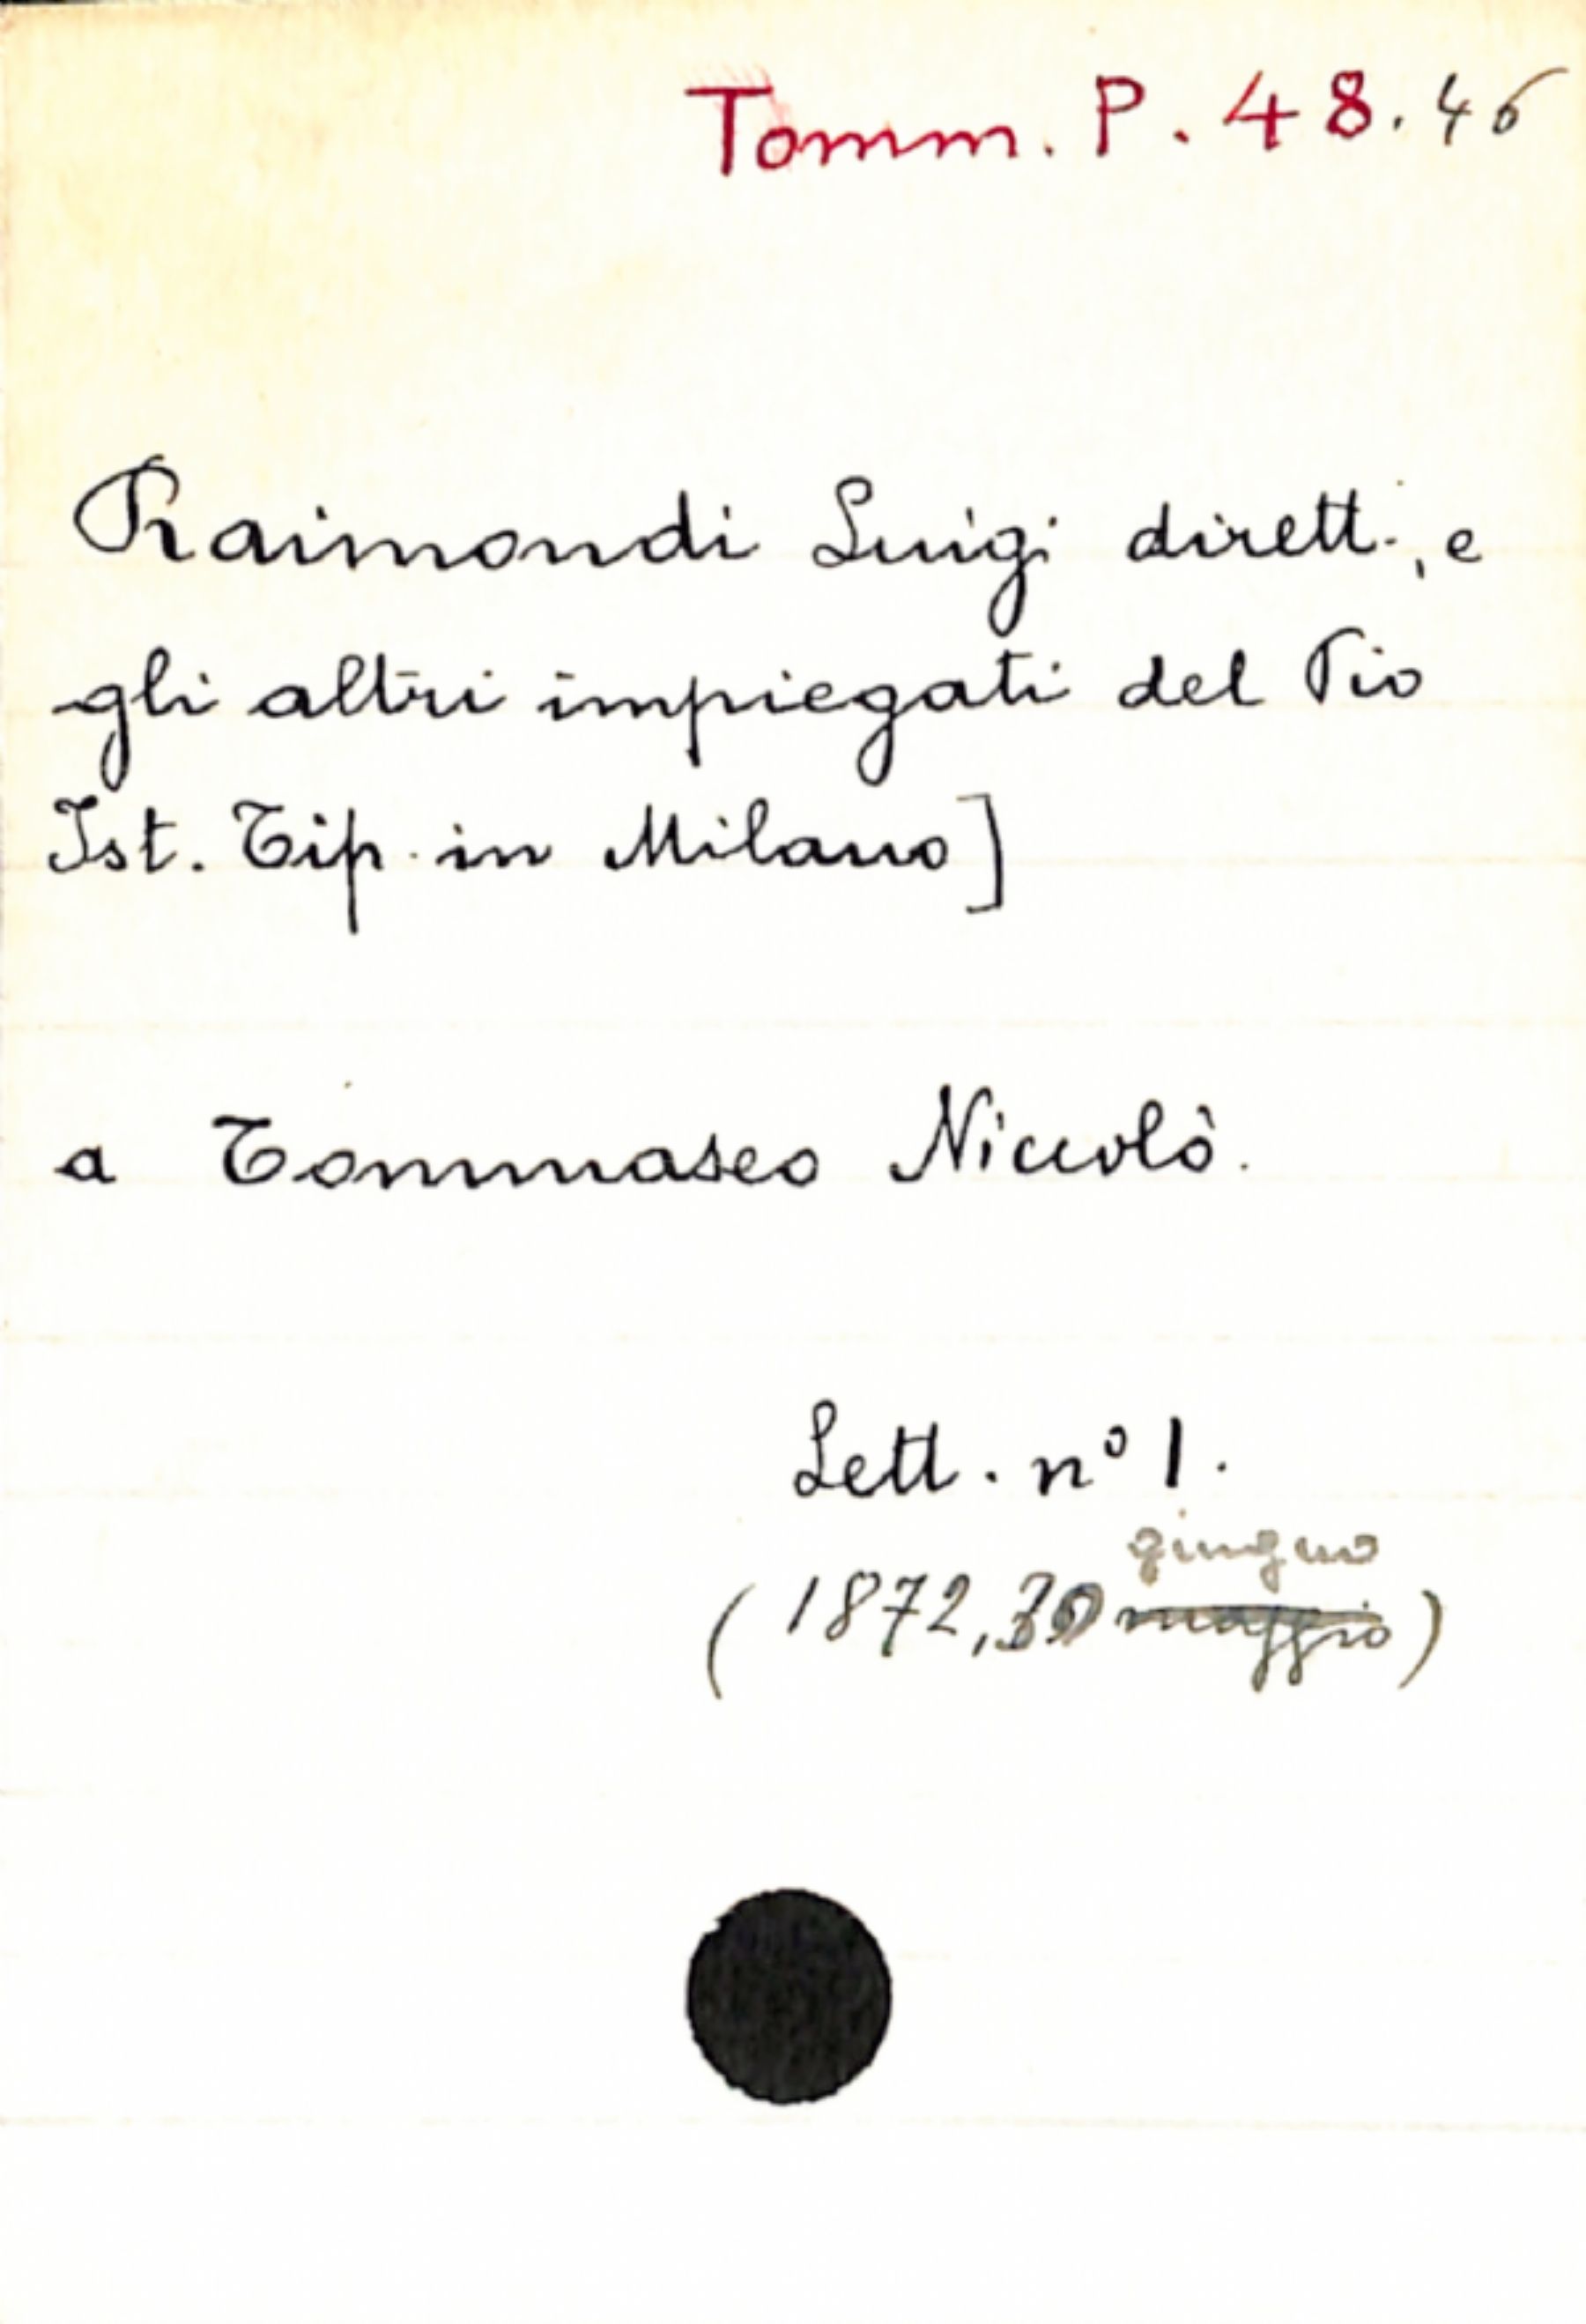 Tomm. P. 48. 46
Raimondi Luigi dirett., e
gli altri impiegati del Pio
Ist. Tip. in Milano]
a Tommaseo Niccolò.
Lett. n° 1.
giugno
(1872, 30 maggio)